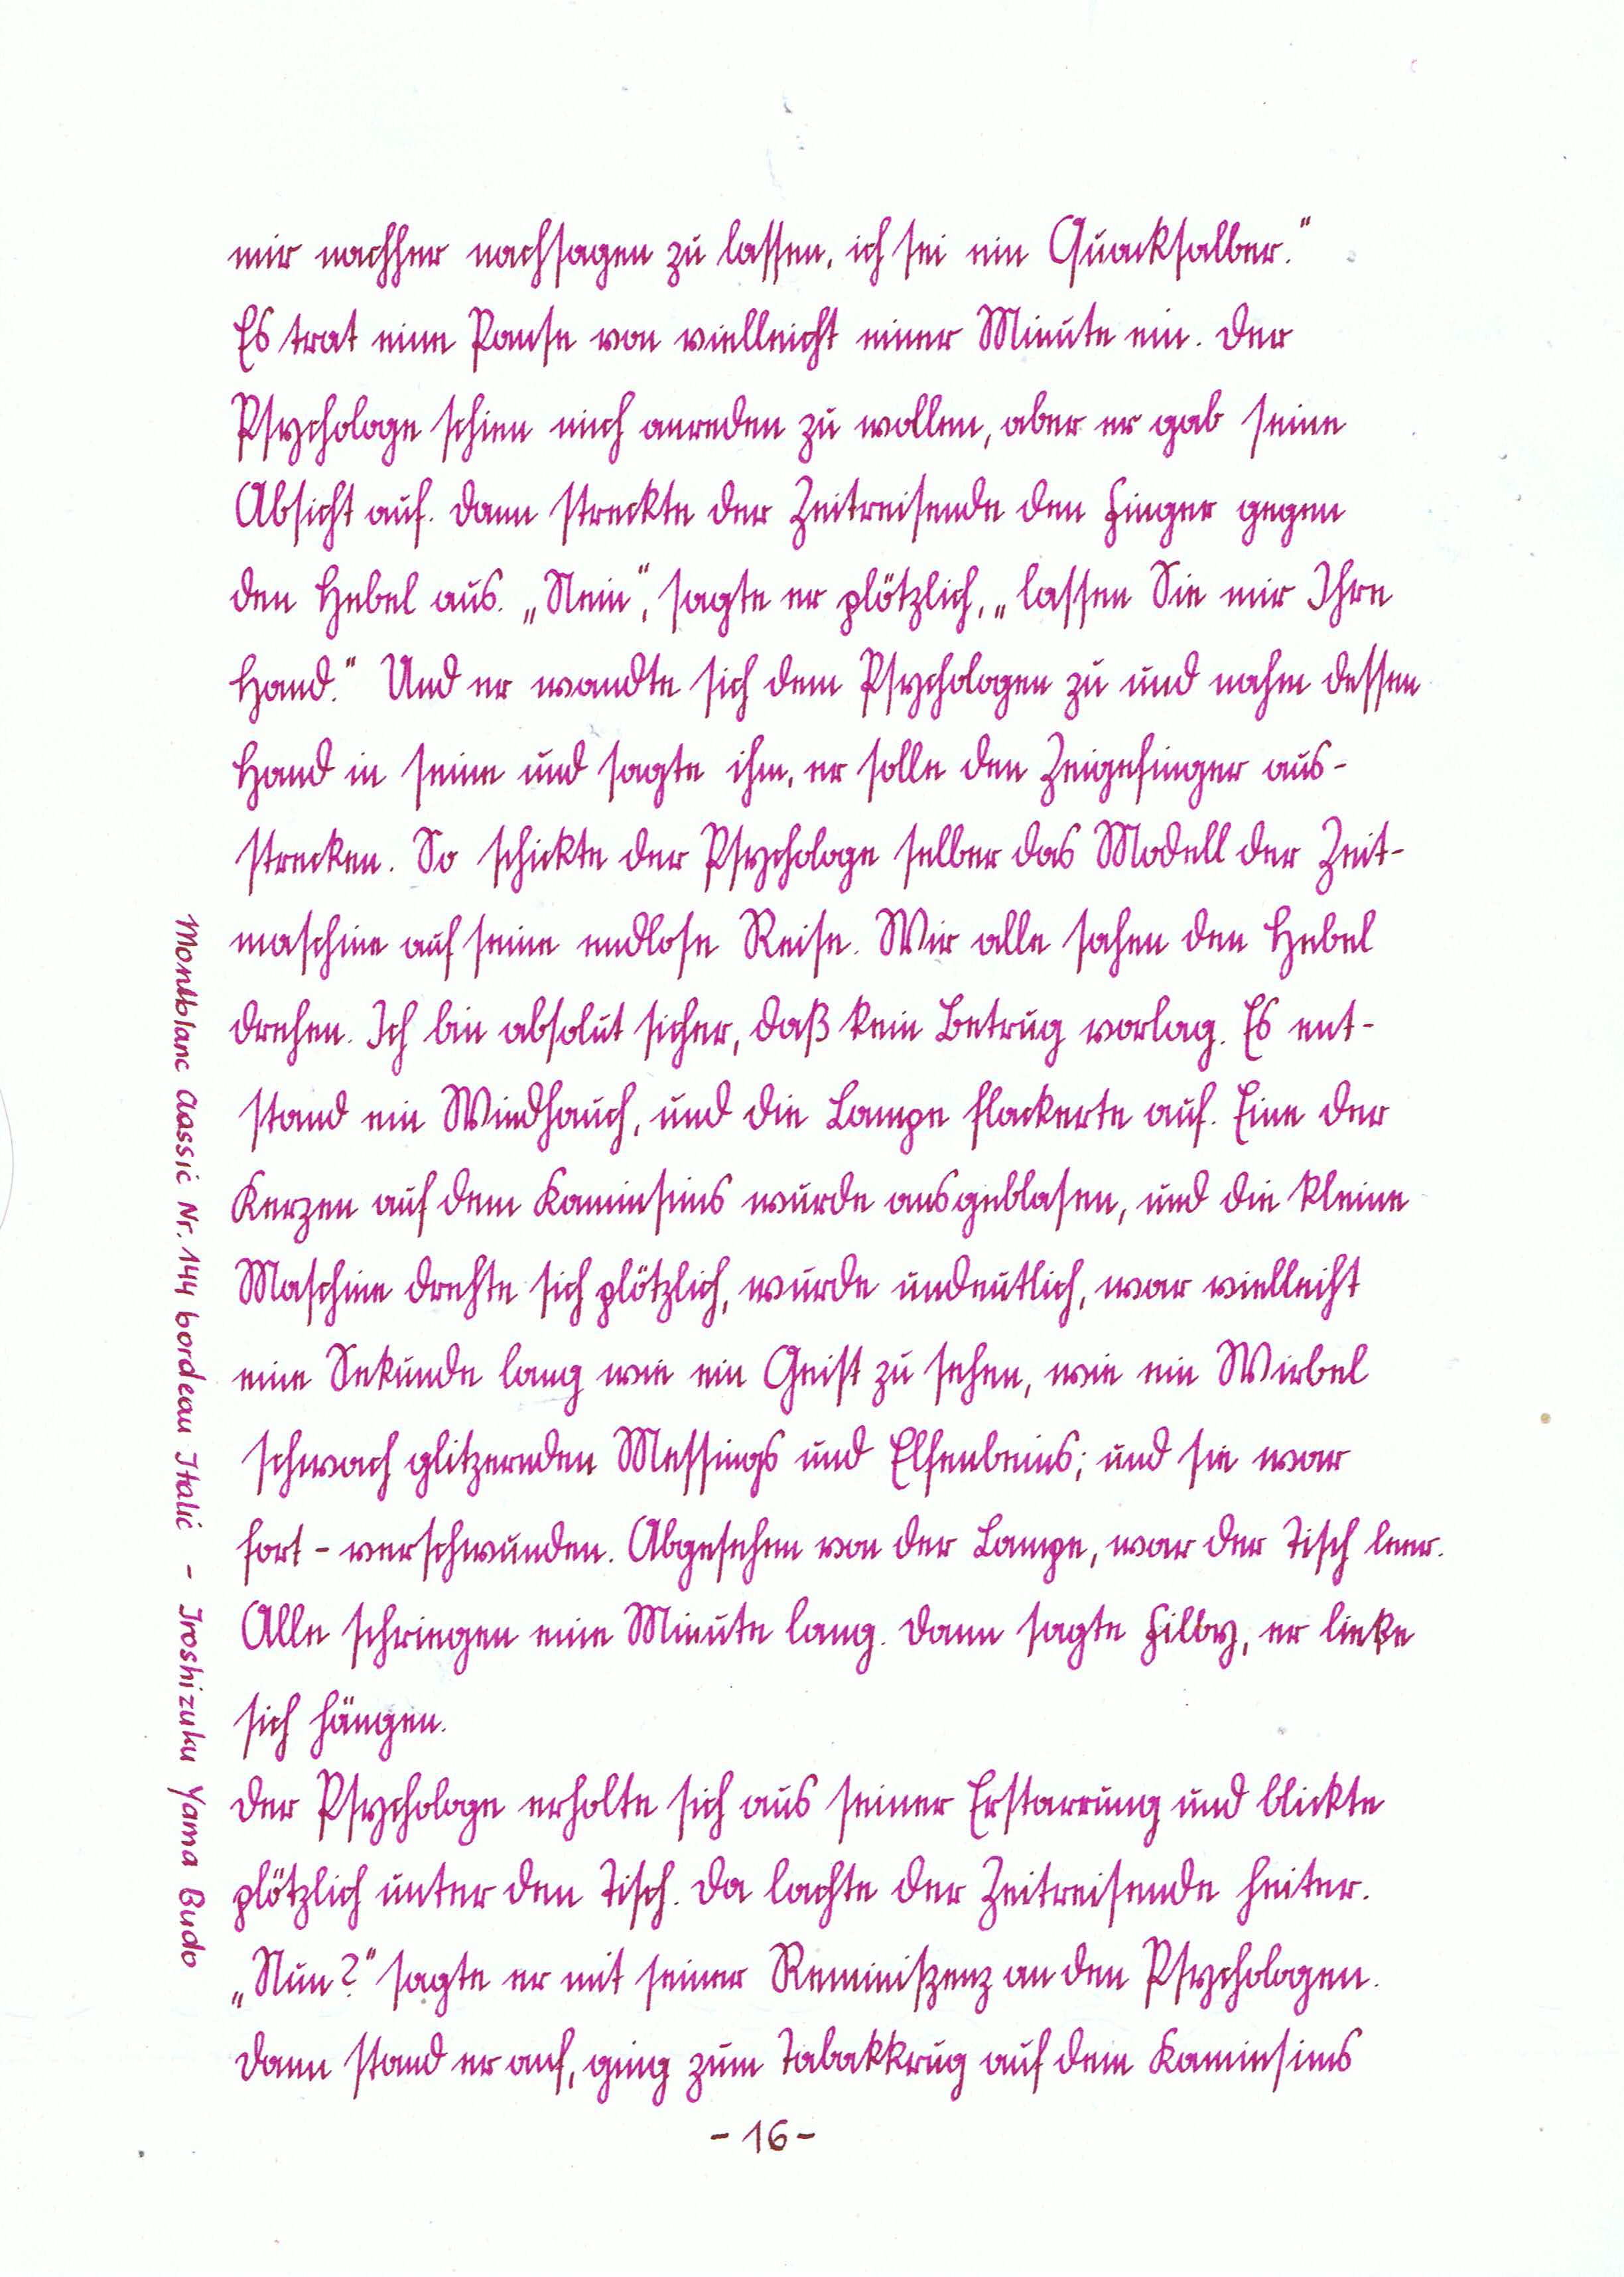 mir nachher nachsagen zu lassen, ich sei ein Quacksalber."
Es trat eine Pause von vielleicht einer Minute ein. Der
Psychologe schien mich anreden zu wollen, aber er gab seine
Absicht auf. Dann streckte der Zeitreisende den Finger gegen
den Hebel aus. „Nein", sagte er plötzlich, „lassen Sie mir Ihre
Hand." Und er wandte sich dem Psychologen zu und nahm dessen
Hand in seine und sagte ihm, er solle den Zeigefinger aus-
strecken. So schickte der Psychologe selber das Modell der Zeit-
maschine auf seine endlose Reise. Wir alle sahen den Hebel
drehen. Ich bin absolut sicher, daß kein Betrug vorlag. Es ent-
stand ein Windhauch, und die Lampe flackerte auf. Eine der
Kerzen auf dem Kaminsims wurde ausgeblasen, und die kleine
Maschine drehte sich plötzlich, wurde undeutlich, war vielleicht
eine Sekunde lang wie ein Geist zu sehen, wie ein Wirbel
schwach glitzernden Messings und Elfenbeins; und sie war
fort - verschwunden. Abgesehen von der Lampe, war der Tisch leer.
Alle schwiegen eine Minute lang. Dann sagte Filby, er ließe
sich hängen.
Der Psychologe erholte sich aus seiner Erstarrung und blickte
plötzlich unter den Tisch. Da lachte der Zeitreisende heiter.
„Nun?" sagte er mit seiner Reminiszenz an den Psychologen.
Dann stand er auf, ging zum Tabakkrug auf dem Kaminsims
- 16 -
Montblanc Classic Nr. 144 bordeau Italic - Iroshizuku Yama Budo